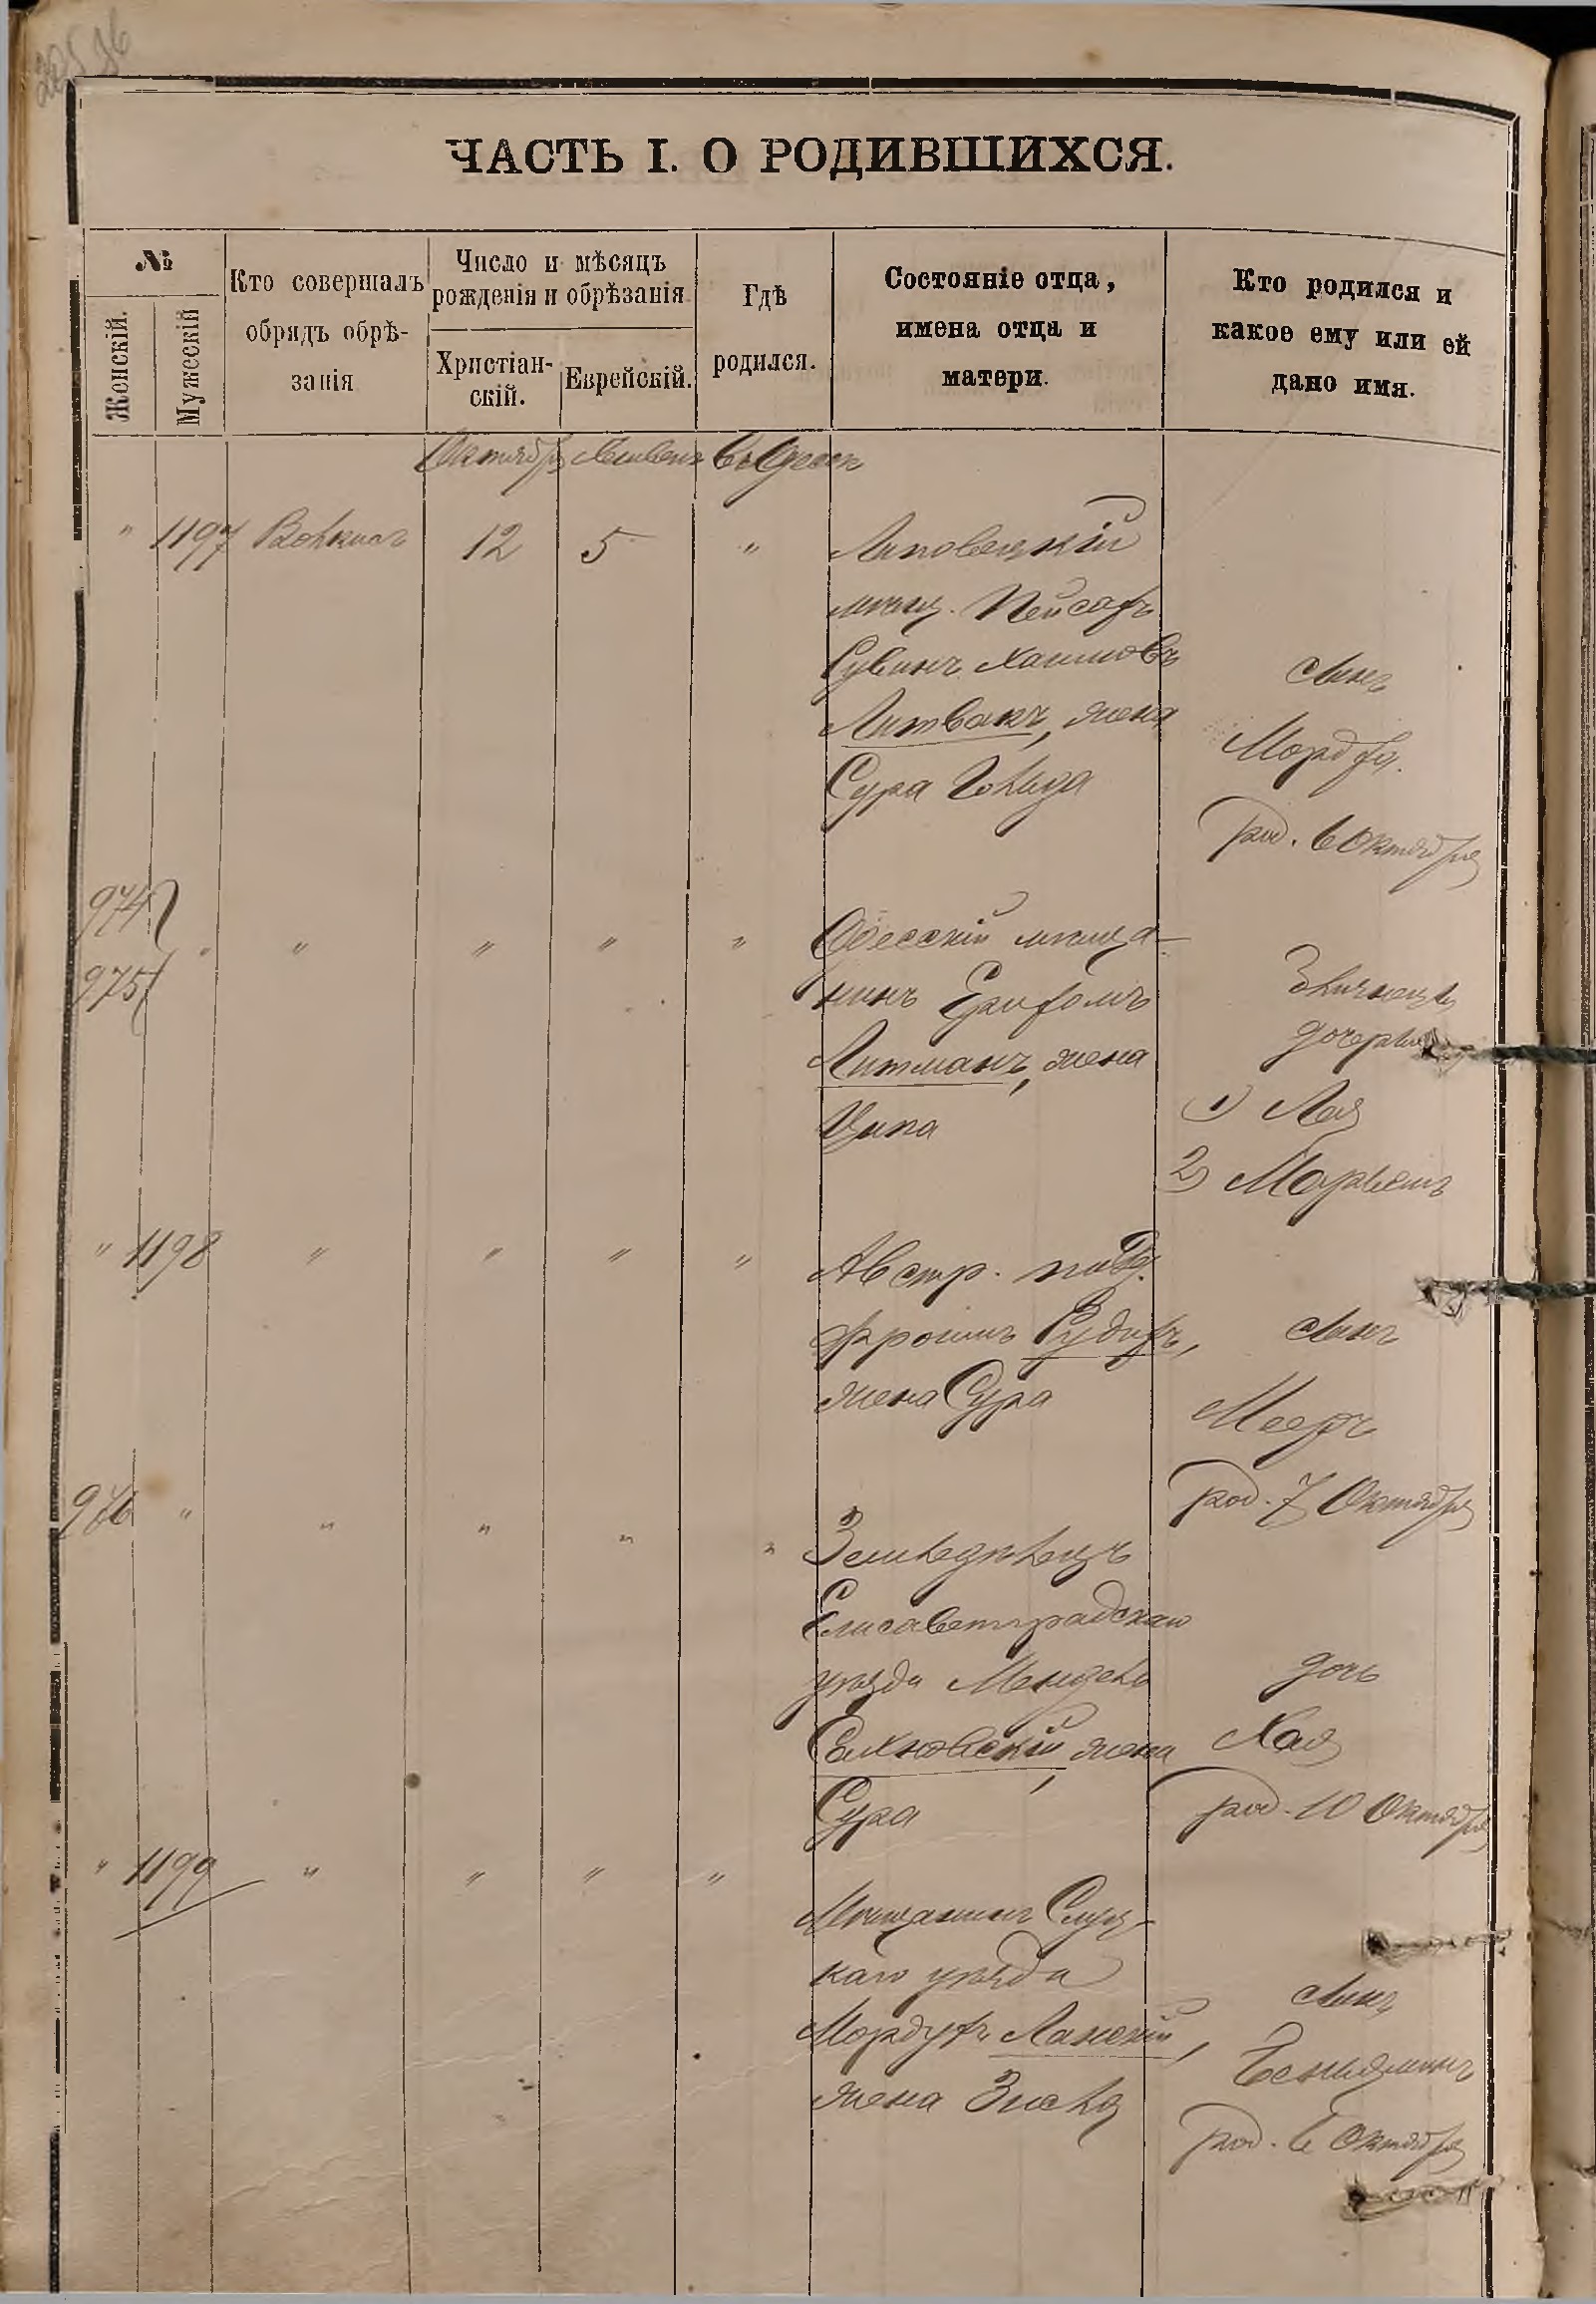 ЧАСТЬ I. О РОДИВШИХСЯ.
№
Женскій.
Мужескій
Кто совершалъ
обрядъ обрѣ-
занія
Число и мѣсяцъ
рожденія и обрѣзанія
Христіан-
скій.
Еврейскій.
Гдѣ
родился.
Состояніе отца,
имена отца и
матери.
Кто родился и
какое ему или ей
дано имя.
Октябрь Хешвенъ Въ Одессѣ
" 1197 12 5 "
Липовецкій
мѣщ. Пейсахъ
Рувинъ Хаимовъ
Литвакъ, жена
Сура Гольда
сынъ
Мордха.
род. 6 Октября
974
975
" " " " "
Одесскій мѣща-
нинъ
Литманъ, жена
Ципа
близнецы
дочери
1) Лея
2) Марьемъ
" 1198 " " " "
Австр. под.
Фроимъ
жена Сура
сынъ
Мееръ
род. 7 Октября
976 " " " " "
Земледѣлецъ
Елисаветградскаго
уѣзда Мендель
жена
Сура
дочь
Хая
род. 10 Октября
" 1199 " " " "
Мѣщанинъ Слуц-
каго уѣзда
Мордухъ Ланскій,
жена Зисля
сынъ
Беньяминъ
род. 6 Октября